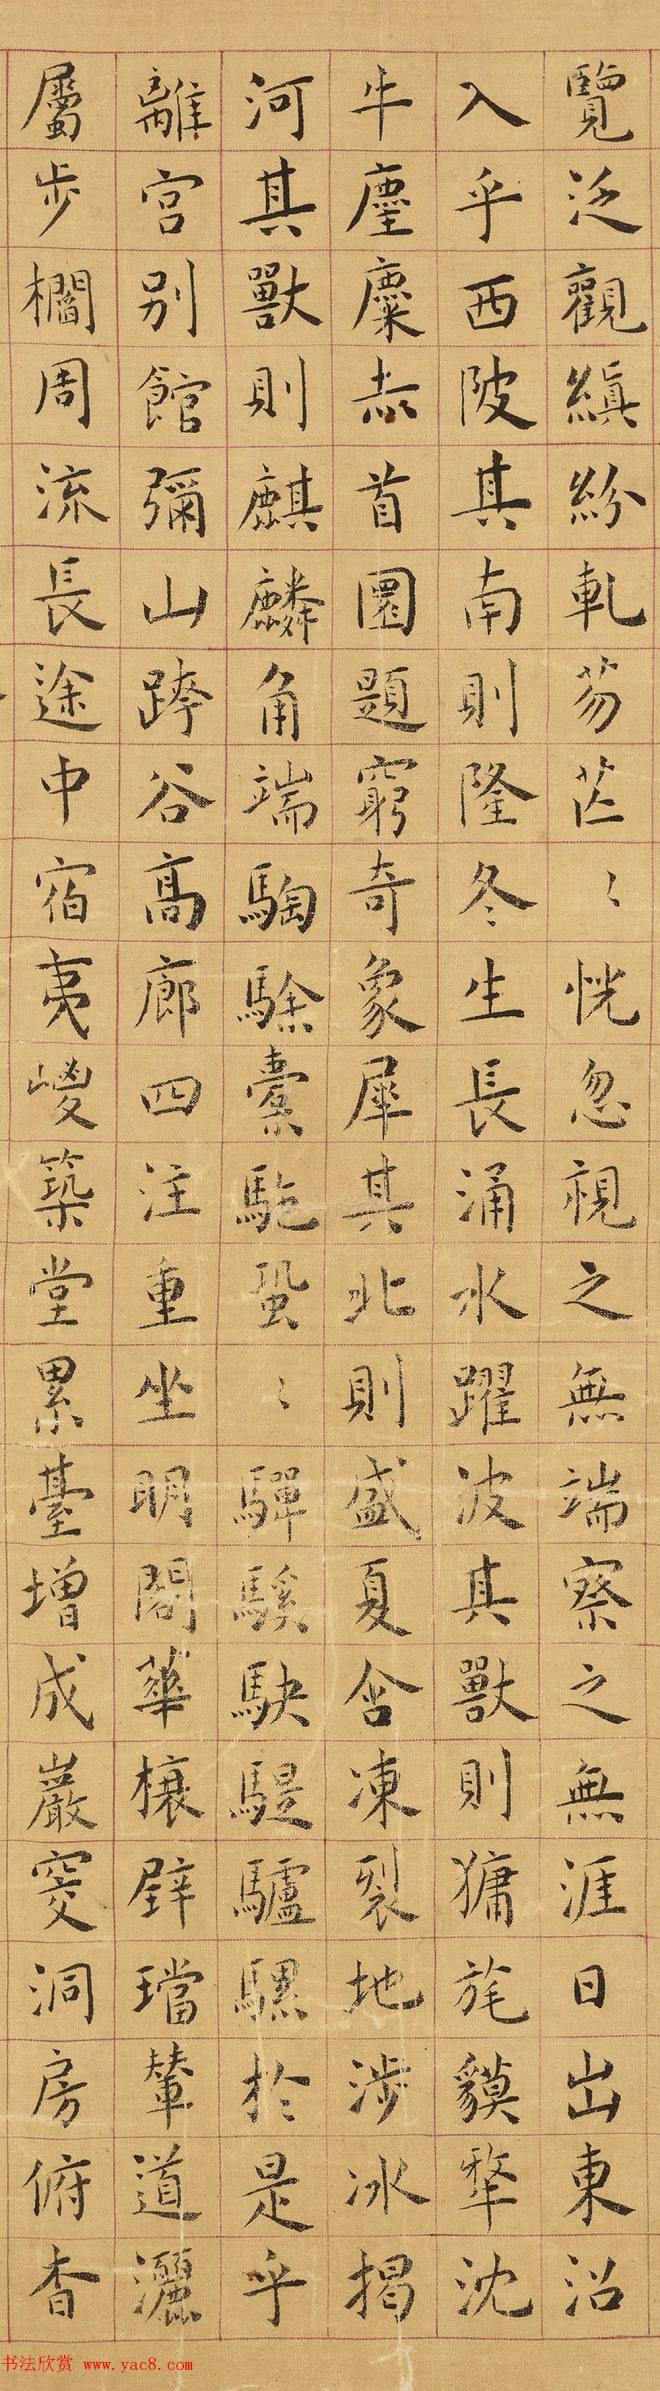 覽泛觀縝紛軋芴芒〻恍忽視之無端察之無涯日出東沼
入乎西陂其南則隆冬生長涌水躍波其獸則㺎旄貘犛沈
牛麈麋赤首圜題窮奇象犀其北則盛夏含凍裂地涉冰揭
河其獸則麒麟角端騊駼橐駞蛩〻驒騱駃騠驢騾於是乎
離宮別館彌山跨谷高廊四注重坐曲閣華榱璧璫輦道灑
屬步櫩周流長途中宿夷嵕築堂累臺增成巖窔洞房俯杳
书法欣赏 www.yac8.com